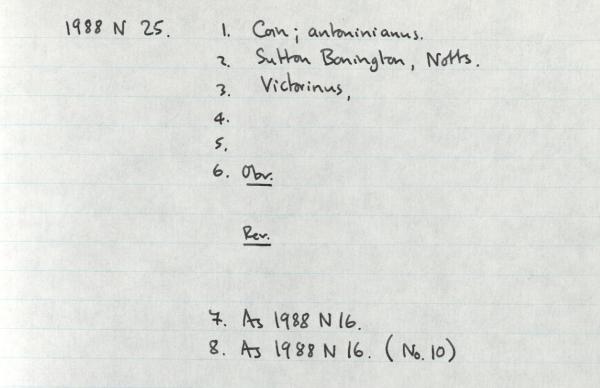 1988 N 25. 1. Coin; antoninianus.
2. Sutton Bonington, Notts.
3. Victorinus,
4.
5.
6. Obv.
Rev.
7. As 1988 N 16.
8. As 1988 N 16. (No. 10)